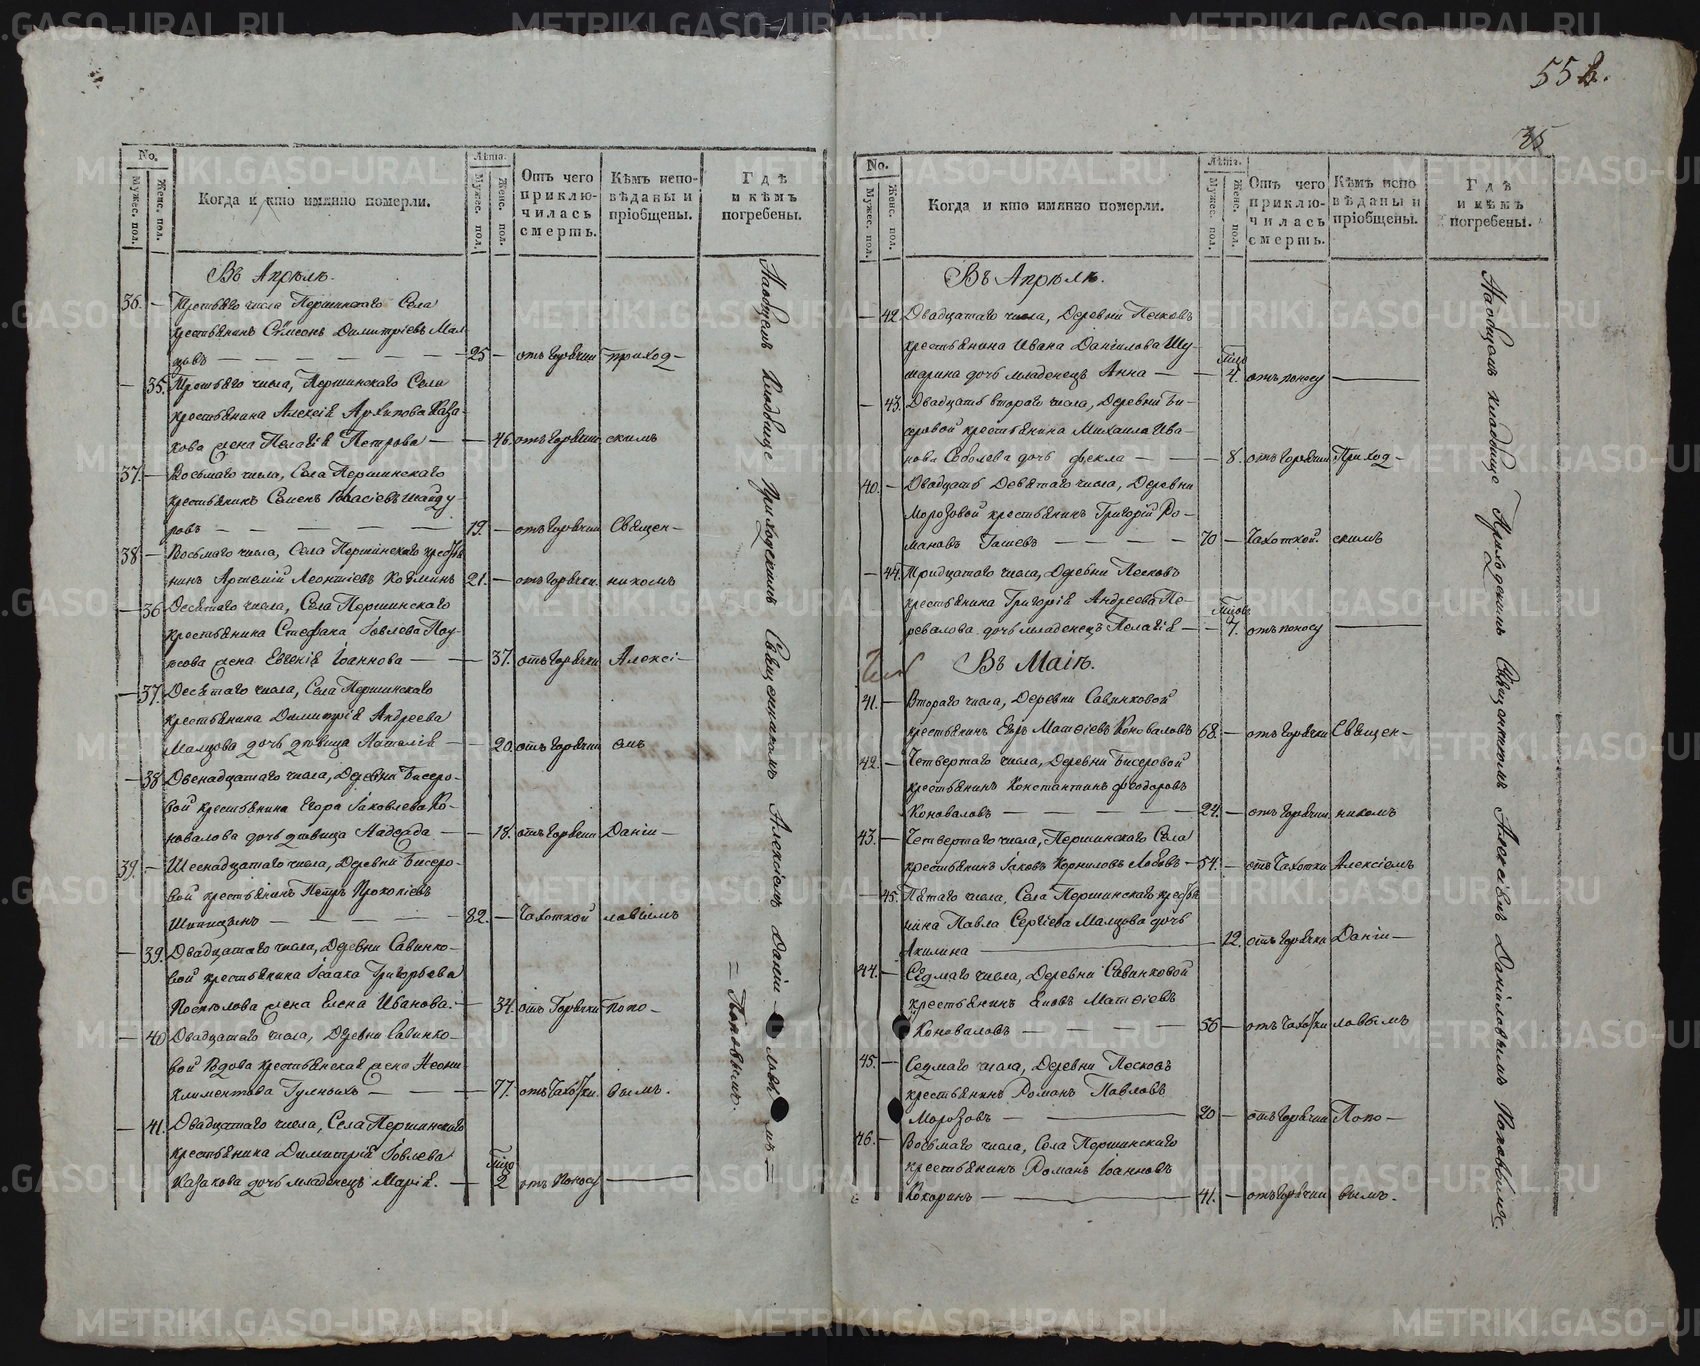 55 в.
35
No.
Мужес. пол.
Женс. пол.
Когда и кто имянно померли.
Лѣта.
Мужес. пол.
Женс. пол.
Отъ чего
приклю-
чилась
смерть.
Кѣмъ испо-
вѣданы и
пріобщены.
Гдѣ
и кѣмъ
погребены.
Въ Апрѣлѣ.
36. — Третьяго числа Першинскаго Села
крестьянинъ Сѵмеонъ Димитріевъ Мал-
цовъ — 25 — отъ горячки приход-
— 35. Третьяго числа, Першинскаго Села
крестьянина Алексія Архипова Каза-
кова жена Пелагія Петрова — 46. отъ горячки скимъ
37. — Восьмаго числа, Села Першинскаго
крестьянинъ Семенъ Власіевъ Шайду-
ровъ — 19. — отъ горячки Священ-
38 — Восьмаго числа, Села Першинскаго кресть
нинъ Артемій Леонтіевъ 21. — отъ горячки. никомъ
— 36 Десятаго числа, Села Першинскаго
крестьянина Стефана Іовлева
жена Евгенія Іоаннова — 37. отъ горячки Алексі-
— 37. Десятаго числа, Села Першинскаго
крестьянина Димитрія Андреева
Малцова дочь дѣвица Наталія — 20. отъ горячки емъ
— 38 Двенадцатаго числа, Деревни Бисеро-
вой крестьянина Егора Іаковлева Ко-
новалова дочь дѣвица Надежда — 18. отъ горячки Даніи-
39. — Шеснадцатаго числа, Деревни Бисеро-
вой крестьянинъ Петръ Прокопіевъ
Шипицынъ — 82. — Чахоткой ловымъ
— 39. Двадцатаго числа, Деревни Савинко-
вой крестьянина Ісаака Григорьева
Постолова жена Елена Иванова. — 34. отъ Горячки Попо-
— 40 Двадцатаго числа, Деревни Савинко-
вой Вдова крестьянская жена
Климентова — 77. отъ Чахотки. вымъ.
— 41. Двадцатаго числа, Села Першинскаго
крестьянина Димитрія Іовлева
Казакова дочь младенецъ Марія. — 2 отъ поносу —
На общемъ кладбище Приходскимъ Священникомъ Алексіемъ Даніи-
ловымъ =
= Поповымъ.
No.
Мужес. пол.
Женс. пол.
Когда и кто имянно померли.
Лѣтъ.
Мужес. пол.
Женс. пол.
Отъ чего
приклю-
чилась
смерть.
Кѣмъ испо
вѣданы и
пріобщены.
Гдѣ
и кѣмъ
погребены.
Въ Апрѣлѣ.
— 42 Двадцатаго числа, Деревни Песковъ
крестьянина Ивана Данилова Шу-
марина дочь младенецъ Анна — 4. отъ поносу —
— 43. Двадцать втораго числа, Деревни Би-
серовой крестьянина Михаила Ива-
нова Соболева дочь Фекла — 8. отъ горячки Приход-
40. — Двадцать Девятаго числа, Деревни
Морозовой крестьянинъ Григорій Ро-
мановъ — 70 — Чахоткой. скимъ
— 44. Тридцатаго числа, Деревни Песковъ
крестьянина Григорія Андреева Пе-
ревалова дочь младенецъ Пелагія — 7. отъ поносу —
Въ Маіѣ.
41. — Втораго числа, Деревни Савинковой
крестьянинъ Матѳіевъ Коноваловъ 68. — отъ горячки Священ-
42. — Четвертаго числа, Деревни Бисеровой
крестьянинъ Константинъ Ѳеодоровъ
Коноваловъ — 24. — отъ горячки никомъ
43. — Четвертаго числа, Першинскаго Села
крестьянинъ Іаковъ Корниловъ — 54. — отъ Чахотки Алексіемъ
— 45. Пятаго числа, Села Першинскаго кресть
нина Павла Сергіева Малцова дочь
Акилина — 12. отъ горячки Даніи-
44. — Седмаго числа, Деревни Савинковой
крестьянинъ Матѳіевъ
Коноваловъ — 56 — отъ Чахотки ловымъ
45. — Седмаго числа, Деревни Песковъ
крестьянинъ Романъ Павловъ
Морозовъ — 20 — отъ горячки Попо-
46. — Восьмаго числа, Села Першинскаго
крестьянинъ Романъ Іоанновъ
Кокаринъ — 41. — отъ горячки вымъ.
На общемъ кладбище Приходскимъ Священникомъ Алексіемъ Даніиловымъ Поповымъ.
METRIKI.GASO-URAL.RU